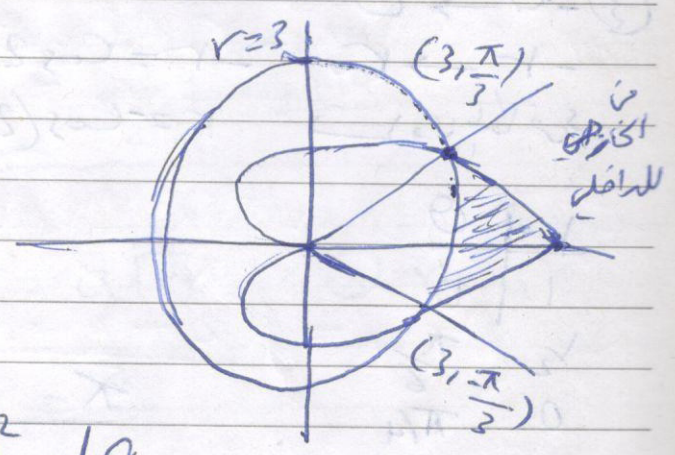 r = 3
(3, π/3)
من
الخارجي
للداخلي
(3, -π/3)
2